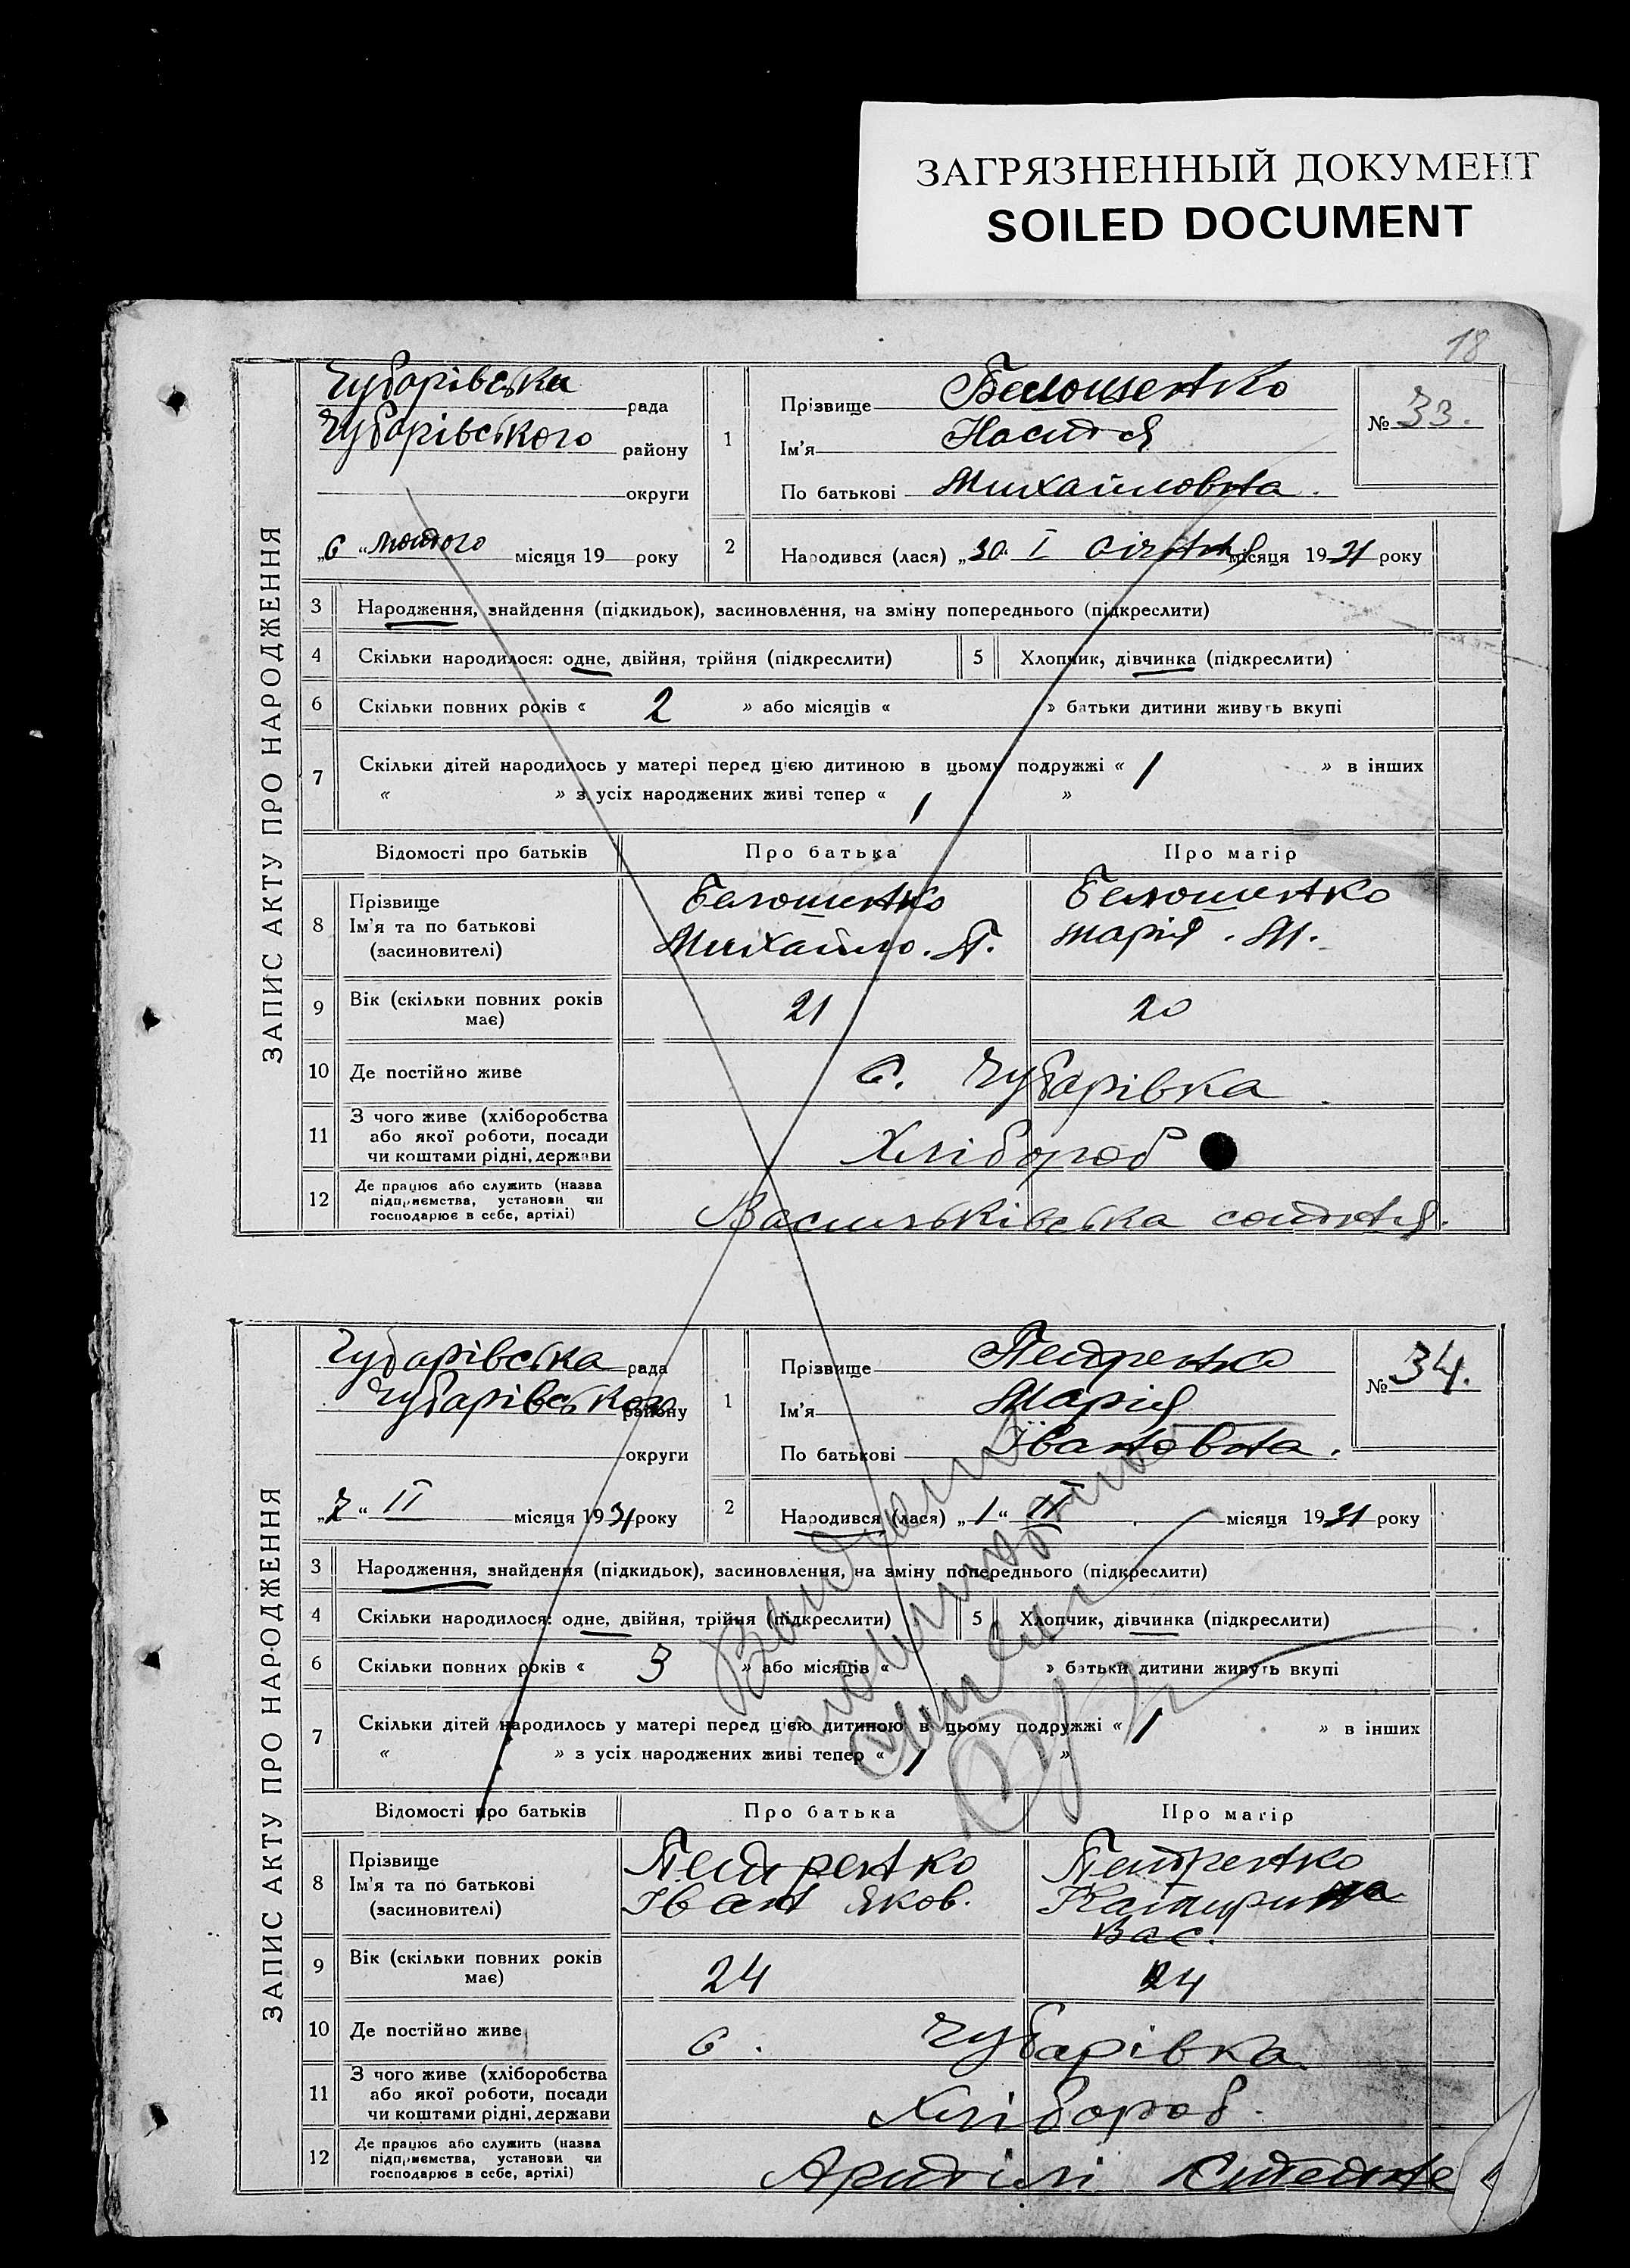 ЗАГРЯЗНЕННЫЙ ДОКУМЕНТ
SOILED DOCUMENT
18
ЗАПИС АКТУ ПРО НАРОДЖЕННЯ
Чубарівська рада
Чубарівського району
округи
„6“ лютого місяця 19 року
1
Прізвище Белошенко
Ім'я Настя
По батькові Михайловна.
№ 33.
2
Народився (лася) „30“ I січня місяця 1931 року
3 Народження, знайдення (підкидьок), засиновлення, на зміну попереднього (підкреслити)
4 Скільки народилося: одне, двійня, трійня (підкреслити) 5 Хлопчик, дівчинка (підкреслити)
6 Скільки повних років « 2 » або місяців « » батьки дитини живуть вкупі
7 Скільки дітей народилось у матері перед цією дитиною в цьому подружжі « 1 » в інших
« » з усіх народжених живі тепер « 1 »
Відомості про батьків Про батька Про матір
8 Прізвище
Ім'я та по батькові
(засиновителі)
Белошенко
Михайло. П.
Белошенко
Марія. М.
9 Вік (скільки повних років має) 21 20
10 Де постійно живе с. Чубарівка
11 З чого живе (хліборобства або якої роботи, посади чи коштами рідні, держави Хлібороб
12 Де працює або служить (назва підприємства, установи чи господарює в себе, артілі) Васильківська сотня.
ЗАПИС АКТУ ПРО НАРОДЖЕННЯ
Чубарівська рада
Чубарівського району
округи
„7“ II місяця 1931 року
1
Прізвище Петренко
Ім'я Марія
По батькові Івановна.
№ 34.
2
Народився (лася) „1“ II місяця 1931 року
3 Народження, знайдення (підкидьок), засиновлення, на зміну попереднього (підкреслити)
4 Скільки народилося: одне, двійня, трійня (підкреслити) 5 Хлопчик, дівчинка (підкреслити)
6 Скільки повних років « 3 » або місяців « » батьки дитини живуть вкупі
7 Скільки дітей народилось у матері перед цією дитиною в цьому подружжі « 1 » в інших
« » з усіх народжених живі тепер « 1 »
Відомості про батьків Про батька Про матір
8 Прізвище
Ім'я та по батькові
(засиновителі)
Петренко
Іван Яков.
Петренко
Катирина
Вас.
9 Вік (скільки повних років має) 24 24
10 Де постійно живе с. Чубарівка
11 З чого живе (хліборобства або якої роботи, посади чи коштами рідні, держави Хлібороб.
12 Де працює або служить (назва підприємства, установи чи господарює в себе, артілі) Артілі